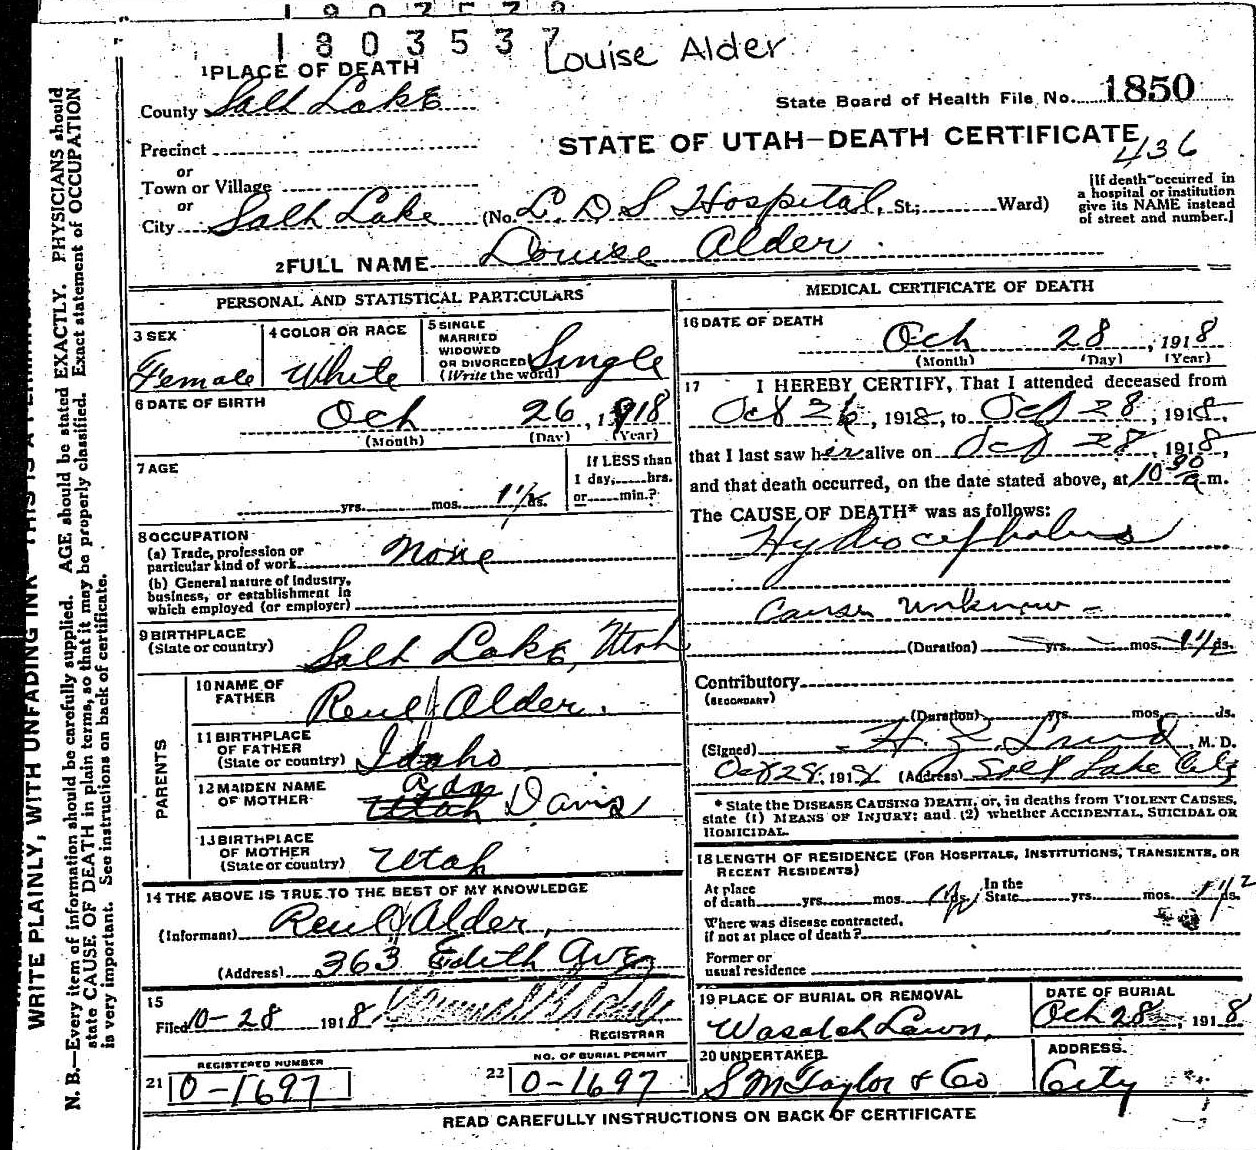 1803537
Louise Alder
1 PLACE OF DEATH
County Salt Lake
State Board of Health File No. 1850
Precinct
STATE OF UTAH-DEATH CERTIFICATE
436
or
Town or Village
or
City Salt Lake (No. L. D. S Hospital, St.; Ward)
[If death occurred in
a hospital or institution
give its NAME instead
of street and number.]
2 FULL NAME Louise Alder
PERSONAL AND STATISTICAL PARTICULARS
3 SEX
Female
4 COLOR OR RACE
White
5 SINGLE
MARRIED
WIDOWED
OR DIVORCED
(Write the word)
Single
6 DATE OF BIRTH
Oct 26, 1918
(Month) (Day) (Year)
7 AGE
yrs. mos. 1 1/2 ds.
If LESS than
1 day, hrs.
or min.?
8 OCCUPATION
(a) Trade, profession or
particular kind of work None
(b) General nature of Industry,
business, or establishment in
which employed (or employer)
9 BIRTHPLACE
(State or country) Salt Lake, Utah
PARENTS
10 NAME OF
FATHER
Reul Alder.
11 BIRTHPLACE
OF FATHER
(State or country) Idaho
12 MAIDEN NAME
OF MOTHER
Ada
Utah Davis
13 BIRTHPLACE
OF MOTHER
(State or country) Utah
14 THE ABOVE IS TRUE TO THE BEST OF MY KNOWLEDGE
(Informant) Reul Alder,
(Address) 363 Edith Ave
15
Filed 10-28 1918
REGISTRAR
REGISTERED NUMBER
21 0-1697
NO. OF BURIAL PERMIT
22 0-1697
MEDICAL CERTIFICATE OF DEATH
16 DATE OF DEATH
Oct 28, 1918
(Month) (Day) (Year)
17 I HEREBY CERTIFY, That I attended deceased from
Oct 26, 1918, to Oct 28, 1918,
that I last saw her alive on Oct 28, 1918,
and that death occurred, on the date stated above, at 10 30 a m.
The CAUSE OF DEATH* was as follows:
Hydrocephalus
Cause unknow-
(Duration) yrs. mos. 1 1/2 ds.
Contributory
(SECONDARY)
(Duration) yrs. mos. ds.
(Signed) H. Z. Lund, M. D.
Oct 28. 1918 (Address) Salt Lake City
* State the DISEASE CAUSING DEATH, or, in deaths from VIOLENT CAUSES,
state (1) MEANS OF INJURY; and (2) whether ACCIDENTAL, SUICIDAL OR
HOMICIDAL.
18 LENGTH OF RESIDENCE (FOR HOSPITALS, INSTITUTIONS, TRANSIENTS, OR
RECENT RESIDENTS)
At place
of death yrs. mos. 1 1/2 ds.
In the
State yrs. mos. 1 1/2 ds.
Where was disease contracted,
if not at place of death?
Former or
usual residence
19 PLACE OF BURIAL OR REMOVAL
Wasatch Lawn,
DATE OF BURIAL
Oct 28, 1918
20 UNDERTAKER
S M Taylor & Co
ADDRESS
City
READ CAREFULLY INSTRUCTIONS ON BACK OF CERTIFICATE
WRITE PLAINLY, WITH UNFADING INK THIS IS A
N. B.—Every item of information should be carefully supplied. AGE should be stated EXACTLY. PHYSICIANS should
state CAUSE OF DEATH in plain terms, so that it may be properly classified. Exact statement of OCCUPATION
is very important. See instructions on back of certificate.